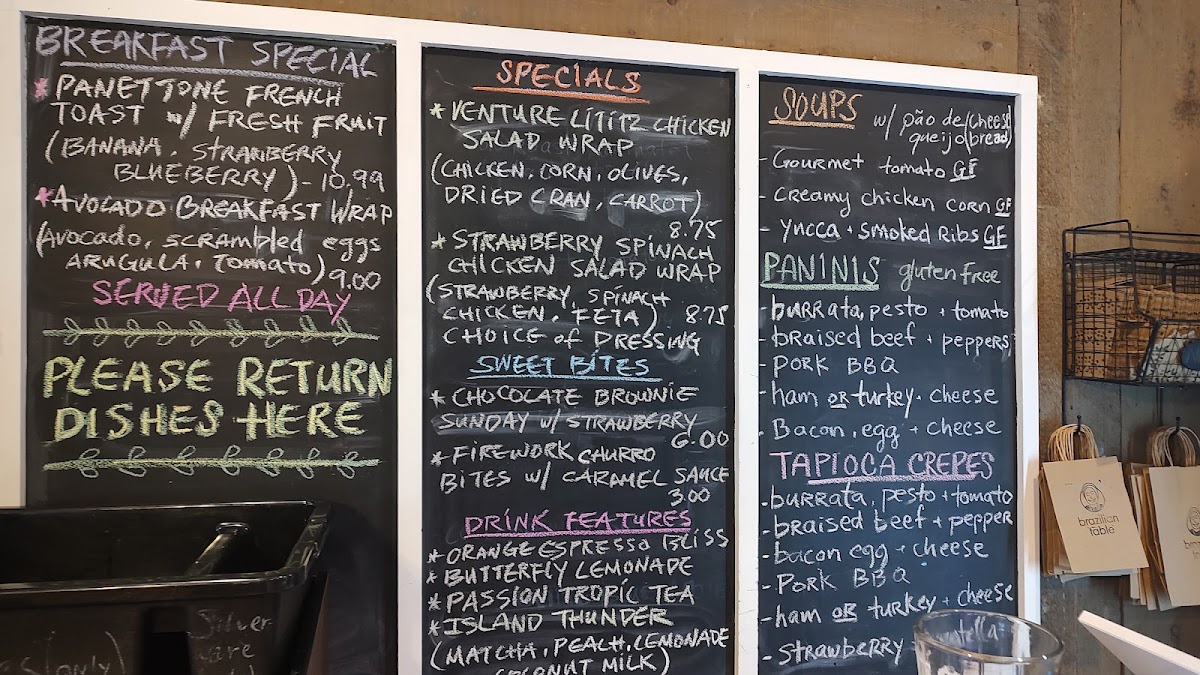 BREAKFAST SPECIAL
* PANETTONE FRENCH
TOAST w/ FRESH FRUIT
(BANANA, STRAWBERRY
BLUEBERRY) - 10.99
* AVOCADO BREAKFAST WRAP
(Avocado, scrambled eggs
ARUGULA, Tomato) 9.00
SERVED ALL DAY
PLEASE RETURN
DISHES HERE
Silver
ware
only)
SPECIALS
* VENTURE LITITZ CHICKEN
SALAD WRAP
(CHICKEN, CORN, OLIVES,
DRIED CRAN, CARROT)
8.75
* STRAWBERRY SPINACH
CHICKEN SALAD WRAP
(STRAWBERRY, SPINACH
CHICKEN, FETA) 8.75
CHOICE of DRESSING
SWEET BITES
* CHOCOLATE BROWNIE
SUNDAY w/ STRAWBERRY
6.00
* FIREWORK CHURRO
BITES w/ CARAMEL SAUCE
3.00
DRINK FEATURES
* ORANGE ESPRESSO BLISS
* BUTTERFLY LEMONADE
* PASSION TROPIC TEA
* ISLAND THUNDER
(MATCHA, PEACH, LEMONADE
COCONUT MILK)
SOUPS w/ pão de (cheese
queijo bread)
- Gourmet tomato GF
- Creamy chicken corn GF
- yucca + smoked Ribs GF
PANINIS gluten free
- burrata, pesto + tomato
- braised beef + peppers
- PORK BBQ
- ham OR turkey + cheese
- Bacon, egg + cheese
TAPIOCA CREPES
- burrata, pesto + tomato
- braised beef + pepper
- bacon egg + cheese
- PORK BBQ
- ham OR turkey + cheese
- strawberry
brazilian
table